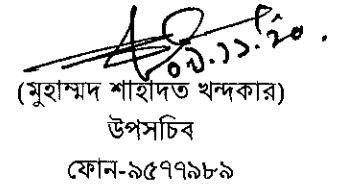 ০১.১১.২০.
(মুহাম্মদ শাহাদত খন্দকার)
উপসচিব
ফোন-৯৫৭৭৯৮৯